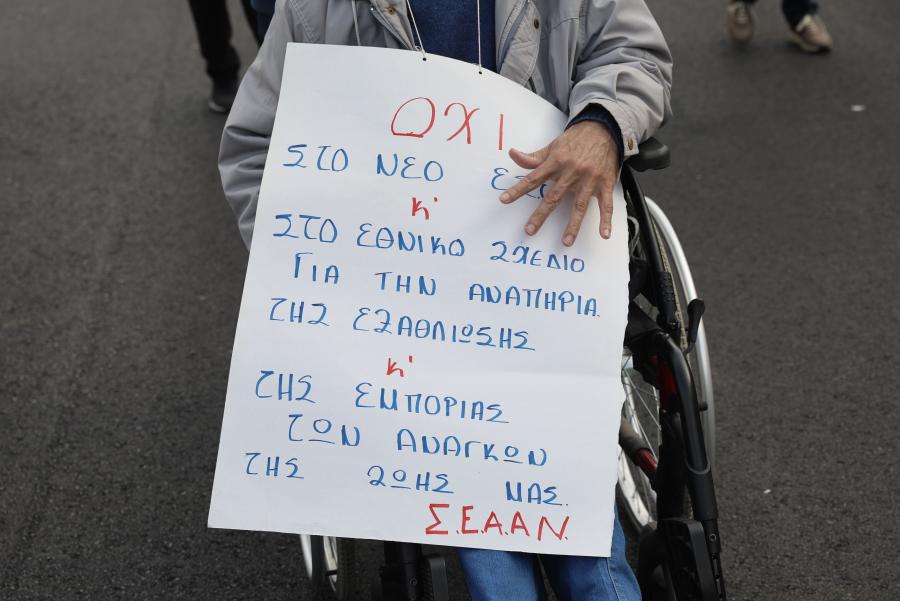 ΟΧΙ
ΣΤΟ ΝΕΟ
Κ'
ΣΤΟ ΕΘΝΙΚΟ ΣΧΕΔΙΟ
ΓΙΑ ΤΗΝ ΑΝΑΠΗΡΙΑ.
ΤΗΣ ΕΞΑΘΛΙΩΣΗΣ
Κ'
ΤΗΣ ΕΜΠΟΡΙΑΣ
ΤΩΝ ΑΝΑΓΚΩΝ
ΤΗΣ ΖΩΗΣ ΜΑΣ.
Σ.Ε.Α.Α.Ν.